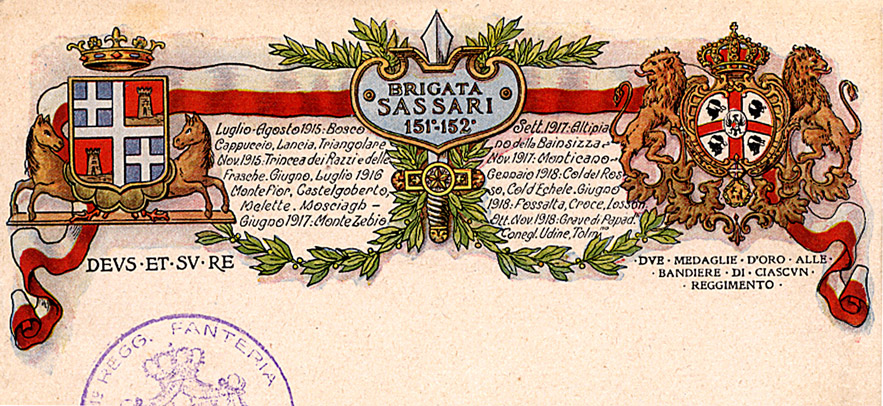 BRIGATA
SASSARI
151º-152º
Luglio-Agosto 1915: Bosco
Cappuccio, Lancia, Triangolare
Nov. 1915: Trincea dei Razzi e delle
Frasche. Giugno, Luglio 1916
Monte Fior, Castelgoberto,
Melette. Mosciagh -
Giugno 1917: Monte Zebio
Sett. 1917: Altipia
no della Bainsizza -
Nov. 1917: Monticano -
Gennaio 1918: Col del Ros-
so, Col d'Echele. Giugno
1918: Fossalta, Croce, Losson
Ott. Nov. 1918: Grave di Papad.
Conegl. Udine, Tolm
DEVS·ET·SV·RE
·DVE·MEDAGLIE·D'ORO·ALLE·
·BANDIERE·DI·CIASCVN·
·REGGIMENTO·
REGG. FANTERIA